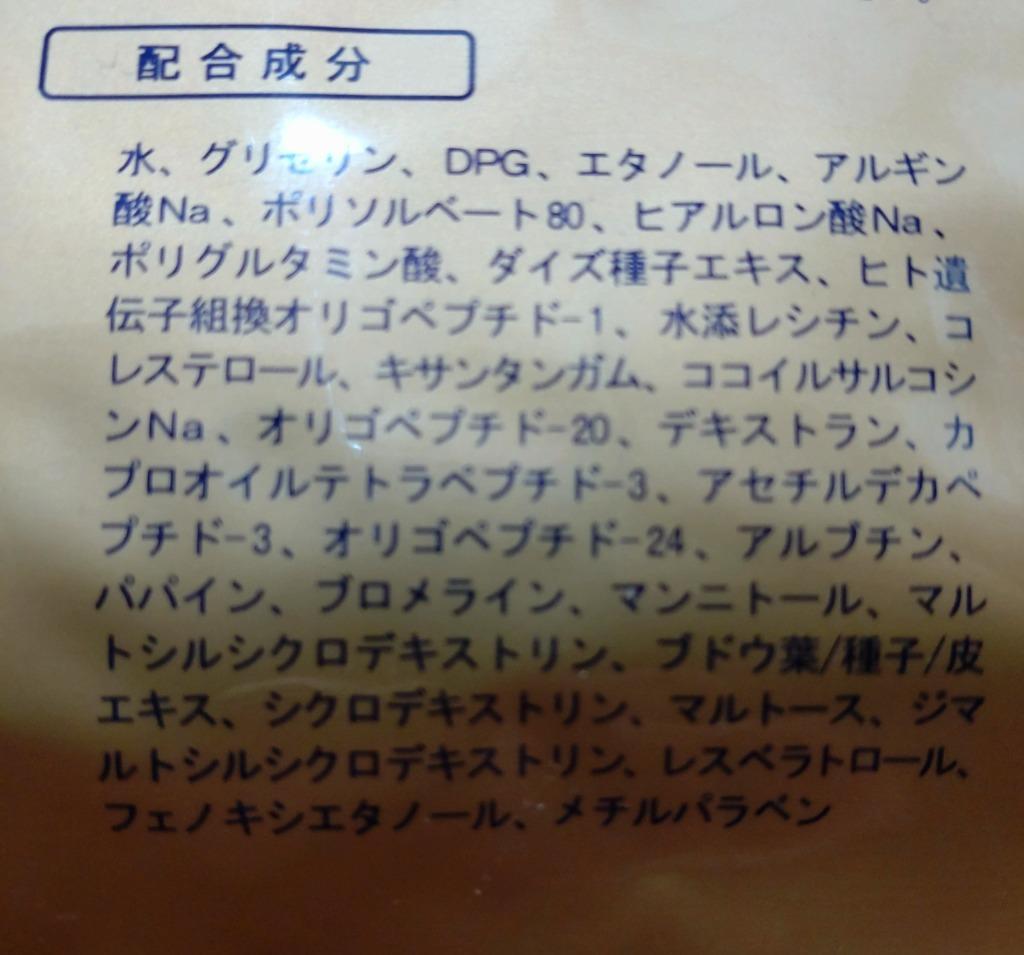 配合成分
水、グリセリン、DPG、エタノール、アルギン
酸Na、ポリソルベート80、ヒアルロン酸Na、
ポリグルタミン酸、ダイズ種子エキス、ヒト遺
伝子組換オリゴペプチド-1、水添レシチン、コ
レステロール、キサンタンガム、ココイルサルコシ
ンNa、オリゴペプチド-20、デキストラン、カ
プロオイルテトラペプチド-3、アセチルデカペ
プチド-3、オリゴペプチド-24、アルブチン、
パパイン、ブロメライン、マンニトール、マル
トシルシクロデキストリン、ブドウ葉/種子/皮
エキス、シクロデキストリン、マルトース、ジマ
ルトシルシクロデキストリン、レスベラトロール、
フェノキシエタノール、メチルパラベン